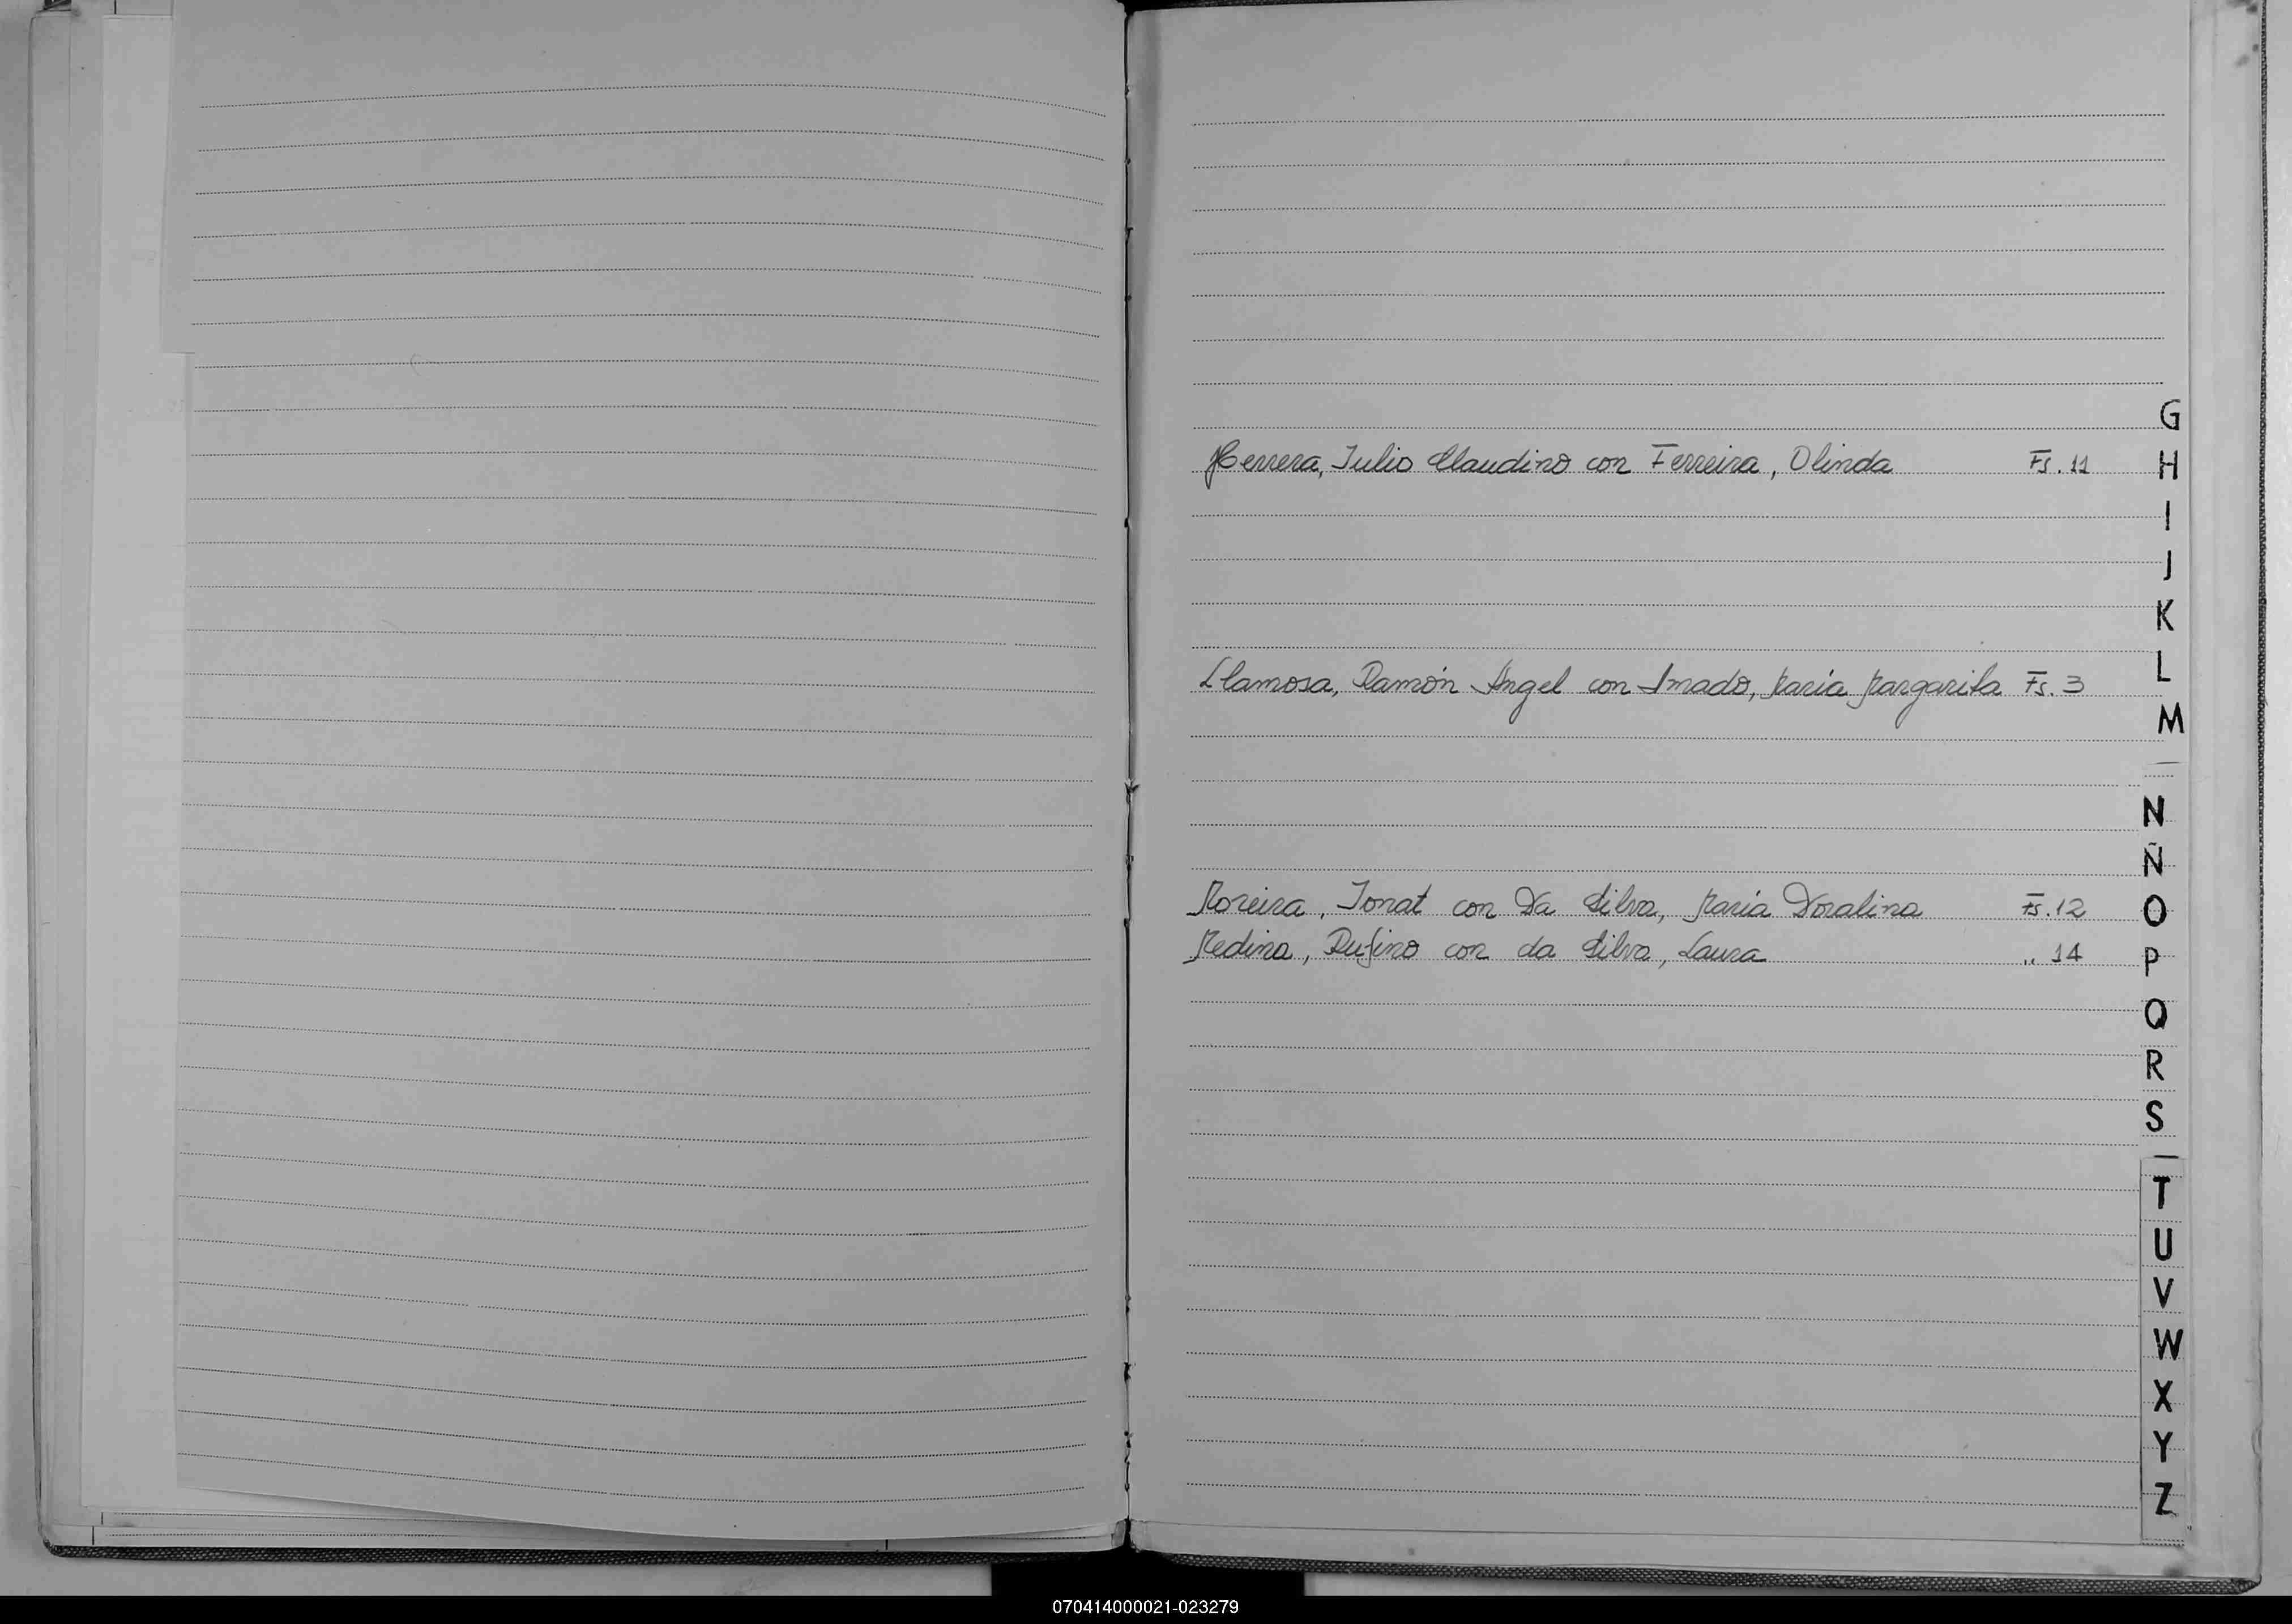 G
Herrera, Julio Claudino con Ferreira, Olinda Fs. 11
H
I
J
K
L
Llamosa, Ramón Angel con Amado, María Margarita Fs. 3
M
N
Ñ
Moreira, Jonat con Da Silva, María Doralina Fs. 12
O
Medina, Rufino con da Silva, Laura " 14
P
Q
R
S
T
U
V
W
X
Y
Z
070414000021-023279